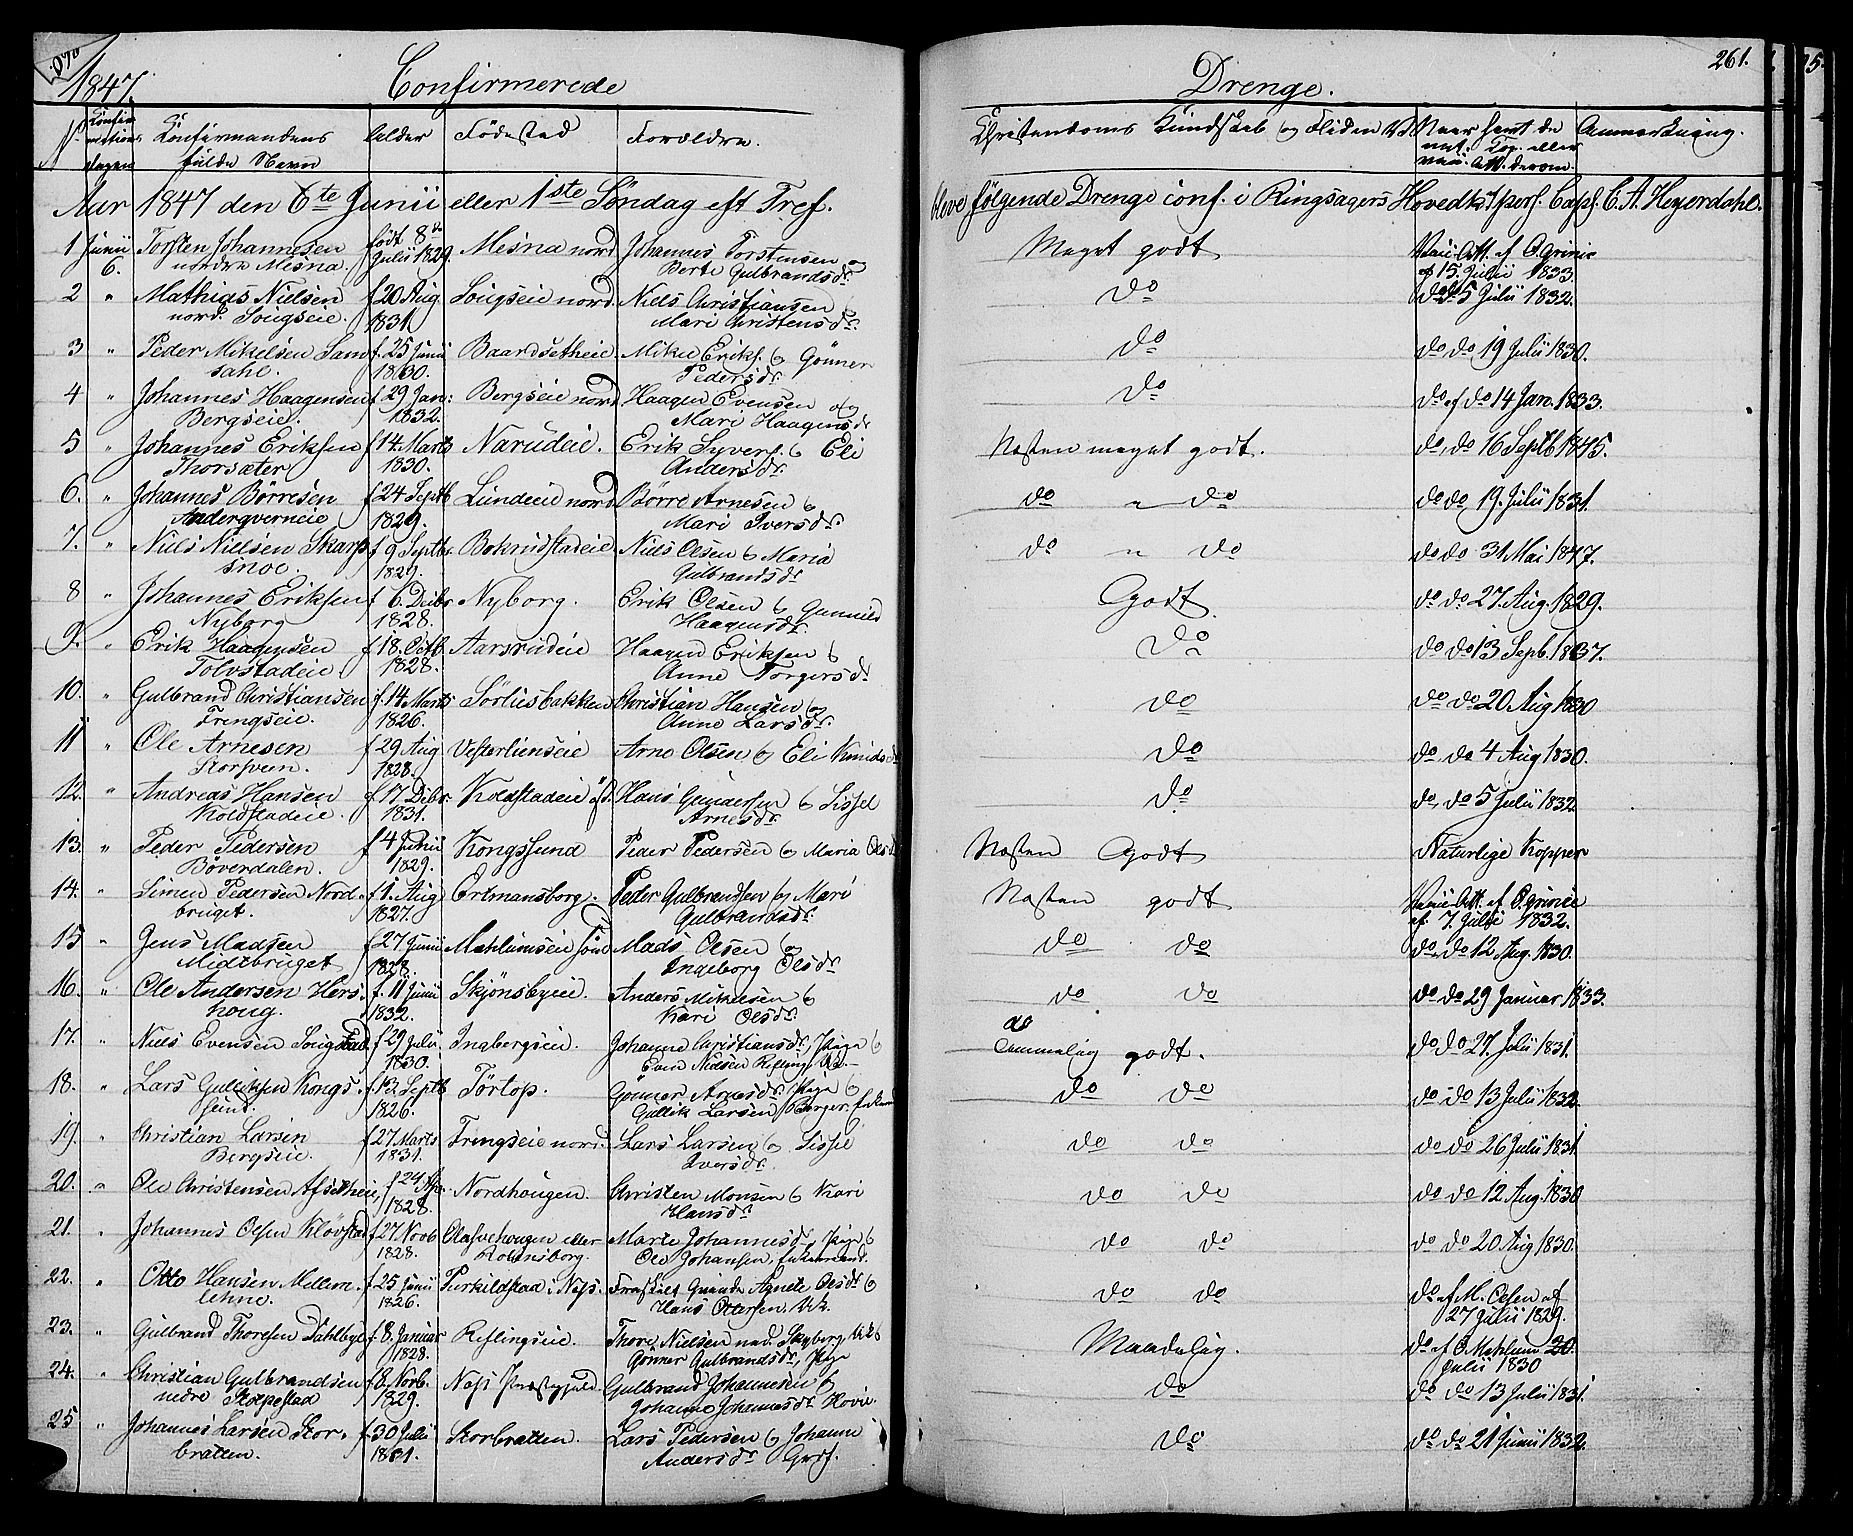 1847. Confirmerede Drenge. 261.
No. Confirmations Dagen Confirmandens fulde Navn Alder Fødested Forældre. Christendoms Kundskab og Fliden Naar havt de nat. Kop. eller vacc. Att. derom Anmærkning.
Aar 1847 den 6te Junii eller 1ste Søndag eft Tref. bleve følgende Drenge conf. i Ringsagers Hovedk. / pers. Cap. C. A. Heyerdahl.
1 Junii 6. Torsten Johannesen nordre Mesna. født 8de Julii 1829. Mesna nord Johannes Torstensen og Berte Gulbrandsdr. Meget godt Vacc. Att. af O. Grinie af 15. Julii 1833.
2 " Mathias Nielsen nord. Lougseie. f 20 Aug. 1831 Lougseie nord. Niels Christiansen & Mari Christensdr. do do do 5 Julii 1832.
3 " Peder Mikelsen f. 25 Junii 1830. Baardsetheie. Mikel Eriks. & Gønner Pedersdr. do do do 19 Julii 1830.
4 " Johannes Haagensen Bergseie. f 29 Jan: 1832. Bergseie nord Haagen Evensen og Mari Haagensdr do do af do 14 Jan. 1833.
5 " Johannes Eriksen Thorsæter f 14. Marts 1830. Narudeie. Erik Syvers. & Eli Andersdr. Næsten meget godt. do, do 16 Septb 1845.
6. " Johannes Børresen f 24 Septb 1829. Lundeeie nord Børre Arnesen & Mari Iversdr. do " do do do 19. Julii 1831.
7. " Niels Nielsen Skarpsnoe. f 9 Septbr 1829. Niels Olsen & Maria Gulbrandsdr do " do do do 31 Mai 1847.
8 " Johannes Eriksen Nyborg f 6. Decbr 1828. Nyborg. Erik Olsen & Gunnild Haagensdr. Godt. do do 27. Aug. 1829.
9. " Erik Haagensen Tolvstadeie f 18. Octb. 1828. Aarsrudeie Haagen Eriksen & Anne Torgersdr do do do 13 Sept. 1837.
10. " Gulbrand Christiansen Frengseie. f. 14 Marts 1826. Sørliesbakken Christian Hansen og Anne Larsdr. do do do 20 Aug 1830
11 " Ole Arnesen Storsveen. f 29 Aug 1828. Vesterlienseie Arne Olsen & Eli Knudsdr do do do 4 Aug 1830.
12. " Andreas Hansen Koldstadeie. f 17 Decbr 1831. Koldstadeie øst. Hans Gundersen & Sissel Arnesdr. do do, do 5 Julii 1832
13. " Peder Pedersen Bøverdalen. f 4 Junii 1829. Kongssund Peder Pedersen & Maria Olsdr Næsten Godt Naturlige Kopper
14. " Simen Pedersen Nordbruget. f 1. Aug 1827. Ortmansborg. Peder Gulbrandsen og Mari Gulbrandsdr. Næsten godt Vacc. Att. af O. Grinie af 7. Julii 1832.
15 " Jens Madsen Midtbruget f 27 Junii 1828. Mahlumseie sønd Mads Olsen og Ingeborg Olsdr. do do do, do 12 Aug. 1830.
16. " Ole Andersen Hershoug. f. 11 Junii 1832. Skjønsbyeie. Anders Mikelsen & Kari Olsdr. do do do do 29 Januar 1833.
17. " Niels Evensen Lougstad f 29 Julii. 1830. Ingbergseie. Johanne Christiansdr., Pige & Even Nielsen Refling, do Temmelig godt. do do 27. Julii 1831.
18. " Lars Gulliksen Kongssund. f. 13. Septb 1826. Tørtop. Gønner Arnesdr. Pige & Gullik Larsen / Berger. do do do do 13 Julii 1832
19. " Christian Larsen Bergseie. f 27. Marts 1831. Frengseie nord. Lars Larsen og Sissel Iversdr. do do do do 26 Julii 1831
20. " Ole Christensen Afsetheie, f 24 1828. Nordhougen. Christen Monsen & Kari Hansdr. do do do do 12 Aug. 1830
21. " Johannes Olsen Kløvstad f 27. Novb 1828. Olasvehougen eller Marte Johannesdr Pige & Ole Johansen, Enkemand. do do do do 20 Aug. 1830.
22. " Otto Hansen Mellemlehne. f 25 Junii 1826. Næss. Fraskilt Qvinde Agnete Olsdr & Hans Ottersen do do do af M. Olsen af 27 Julii 1829.
23. " Gulbrand Thoresen Dahlbye f 8. Januar 1828. Reflingseie. Thore Nielsen ned. Skyberg & Gønner Gulbrandsdr., Pige Maadelig. do af O. Mahlum 20. Julii 1830
24. " Christian Gulbrandsen nedre Stolpestad f 8. Novb. 1829. Næss Præstegjeld Gulbrand Johannesen & Johanne Johannesdr. Hovie. do do do 13 Julii 1831
25 " Johannes Larsen Storbratten. f 30 Julii 1831. Storbratten. Lars Pedersen & Johanne Andersdr. Grsf. do do, do 21 Junii 1832.